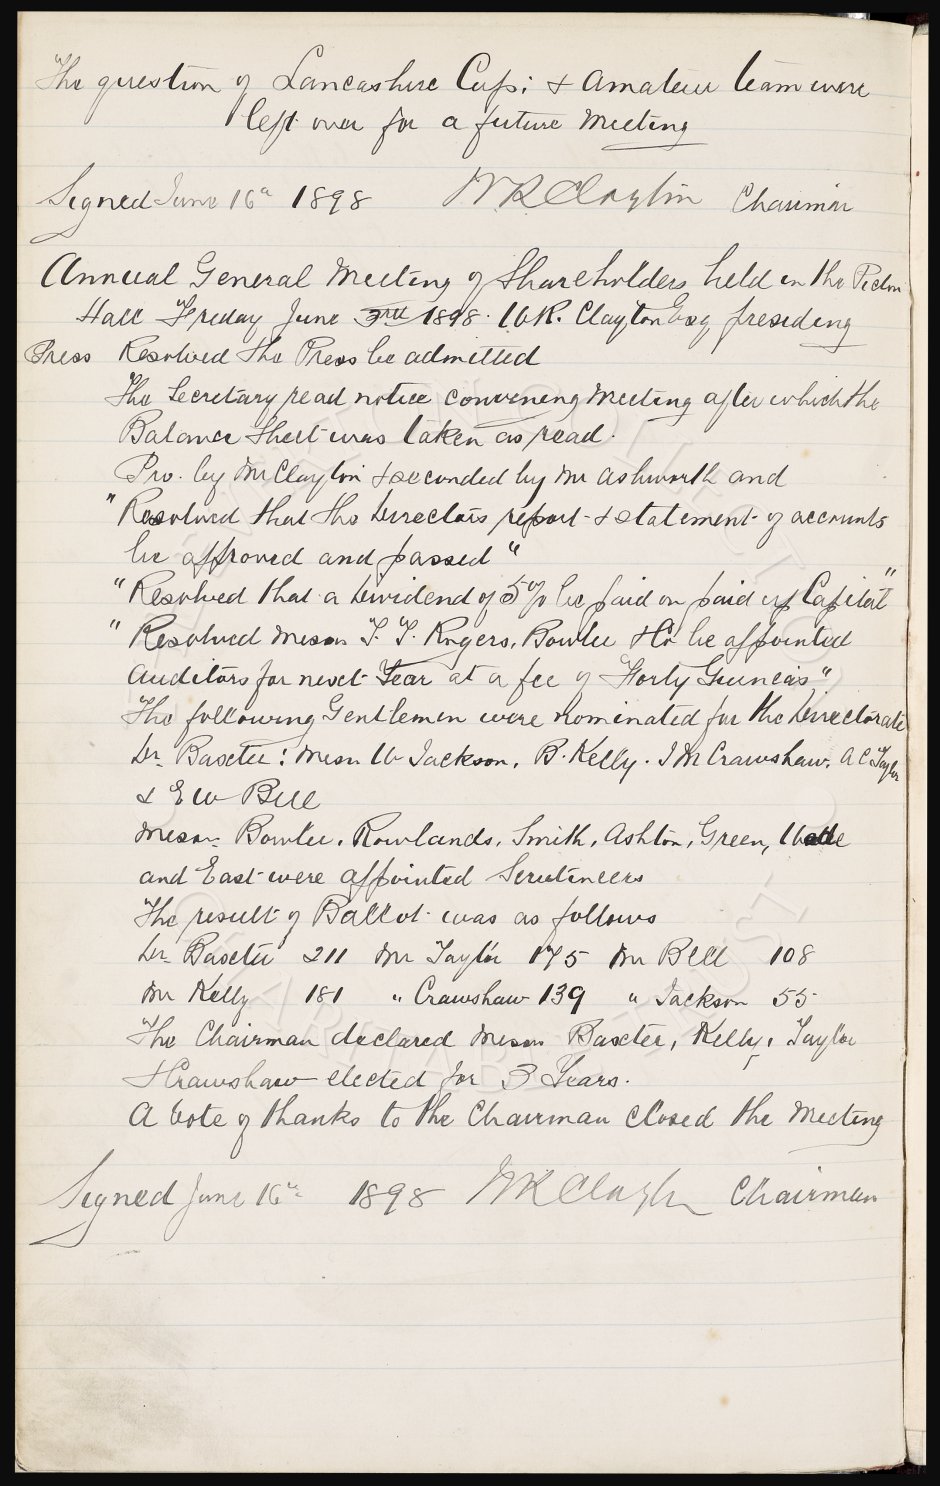 The question of Lancashire Cup; & Amateur team were
left over for a future Meeting
Signed June 16th 1898 W R Clayton Chairman
Annual General Meeting of Shareholders held in the Picton
Hall Friday June 3rd 1898. W R. Clayton Esq presiding
Press Resolved the Press be admitted
The Secretary read notice convening Meeting after which the
Balance Sheet was taken as read.
Pro. by Mr Clayton & seconded by Mr Ashworth and
"Resolved that the Directors report & statement of accounts
be approved and passed"
"Resolved that a Dividend of 5% be paid on paid up Capital"
"Resolved Messrs T. T. Rogers, Bowler & Co be appointed
Auditors for next Year at a fee of Forty Guineas".
The following Gentlemen were nominated for the Directorate
Dr. Baxter: Messrs W Jackson, B. Kelly. J M Crawshaw, A C Taylor
& E W Bell
Messrs Bowler, Rowlands, Smith, Ashton, Green,
and East were appointed Scrutineers
The result of Ballot was as follows
Dr. Baxter 211 Mr Taylor 175 Mr Bell 108
Mr Kelly 181 " Crawshaw 139 " Jackson 55
The Chairman declared Messrs Baxter, Kelly, Taylor
& Crawshaw elected for 3 Years.
A Vote of thanks to the Chairman closed the Meeting
Signed June 16th 1898 W R Clayton Chairman